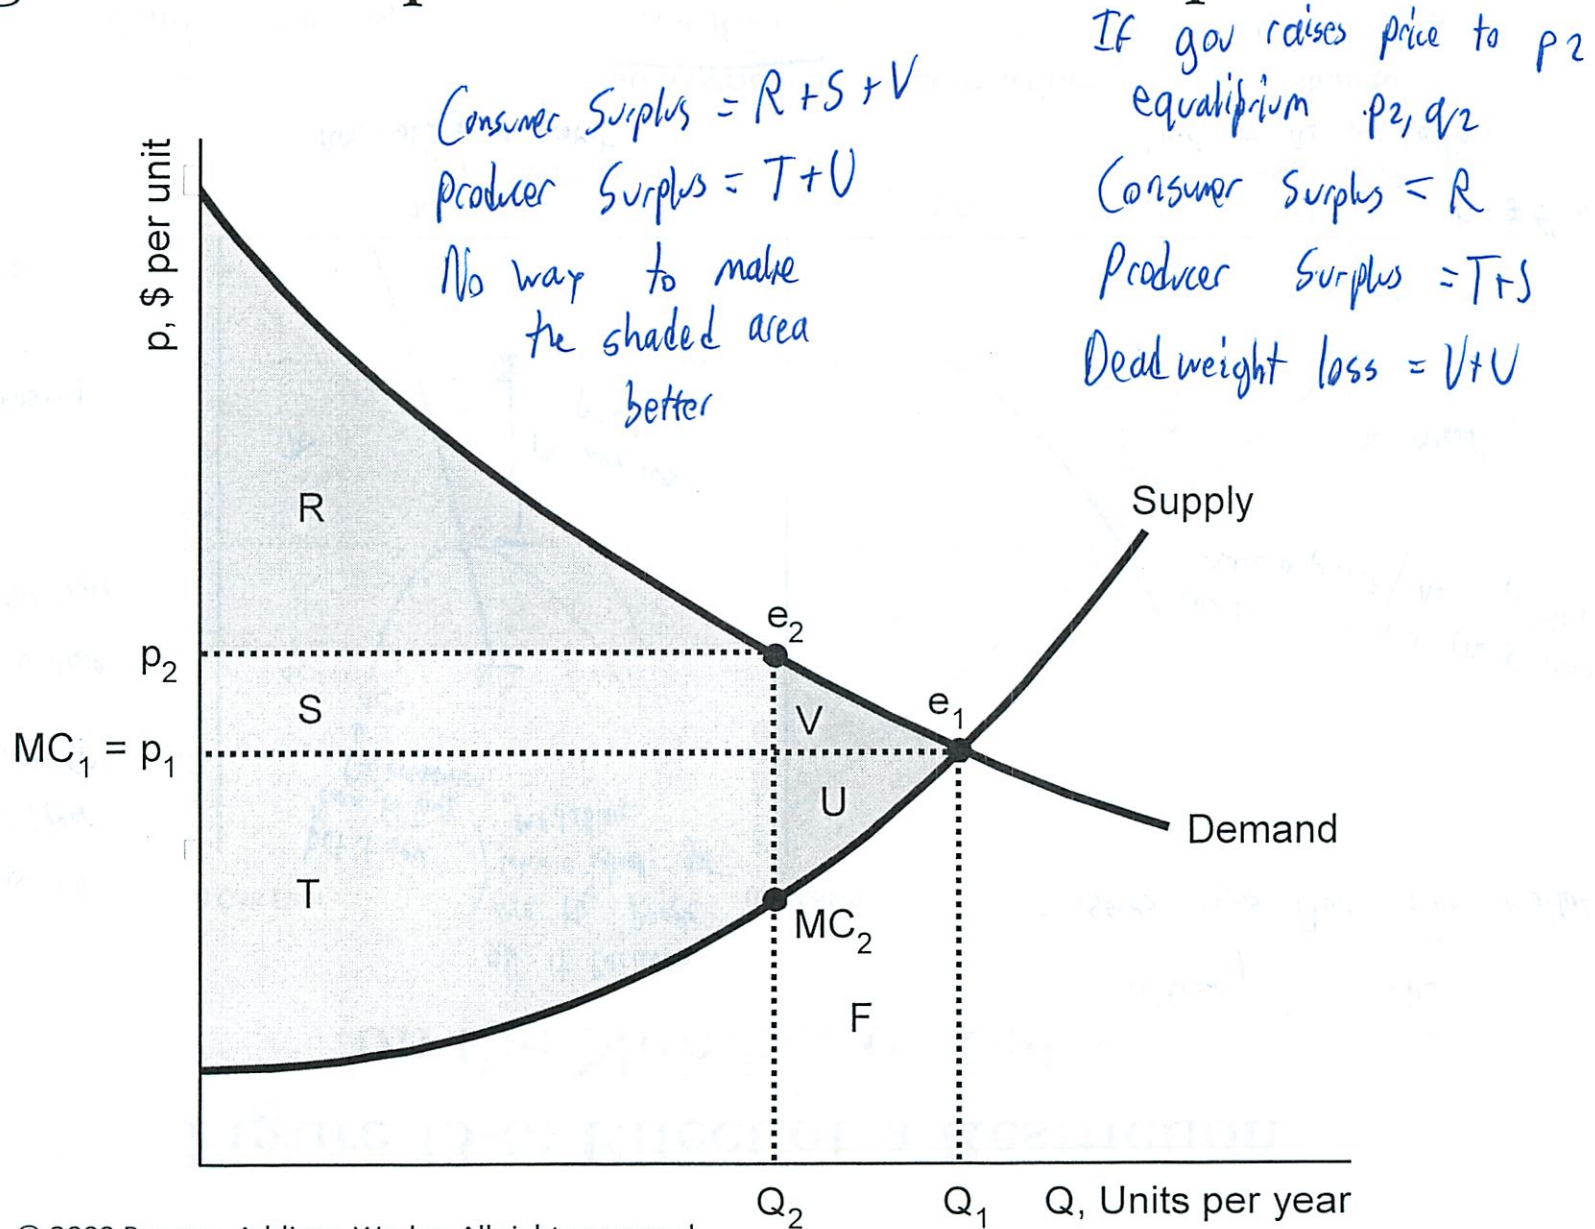 Consumer Surplus = R + S + V
Producer Surplus = T + U
No way to make
the shaded area
better
If gov raises price to p2
equalibrium p2, q2
Consumer Surplus = R
Producer Surplus = T+S
Dead weight loss = V+U
p, $ per unit
R
Supply
e2
p2
S
V
e1
MC1 = p1
U
Demand
T
MC2
F
Q2
Q1
Q, Units per year